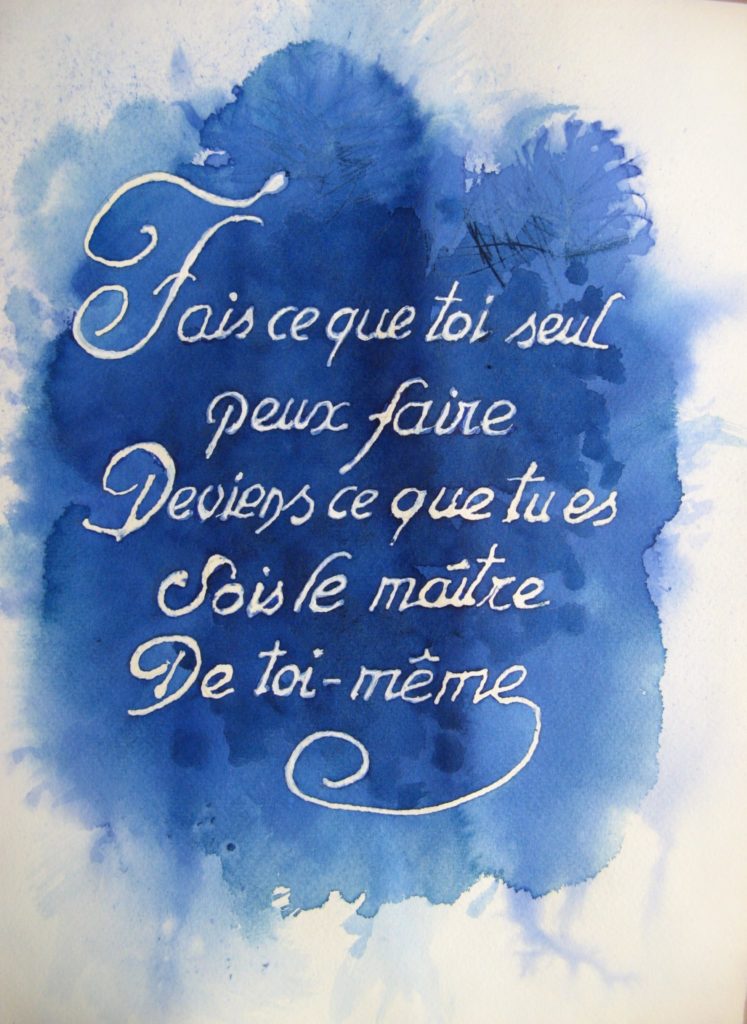 Fais ce que toi seul
peux faire
Deviens ce que tu es
Sois le maître
De toi-même